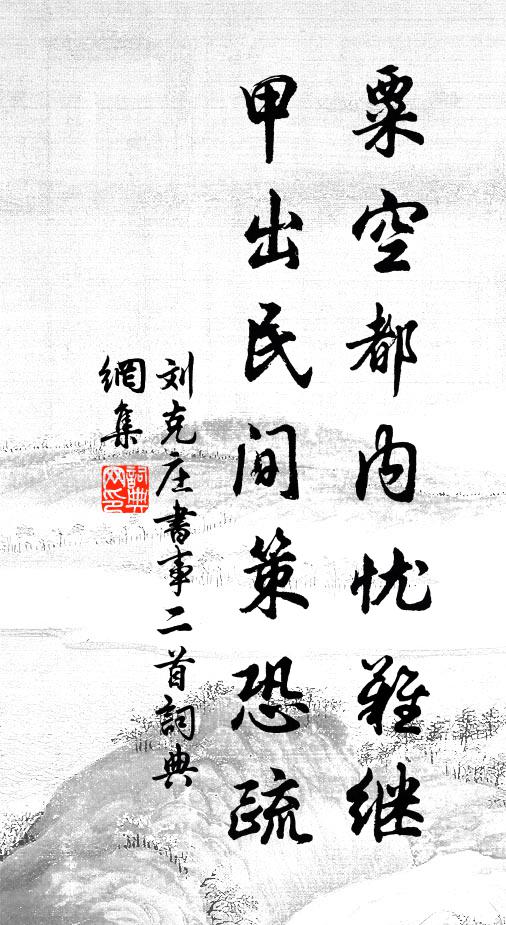 粟空都内忧难继
甲出民间策恐疏
刘克庄书事二首詞典
網集
詞典網印